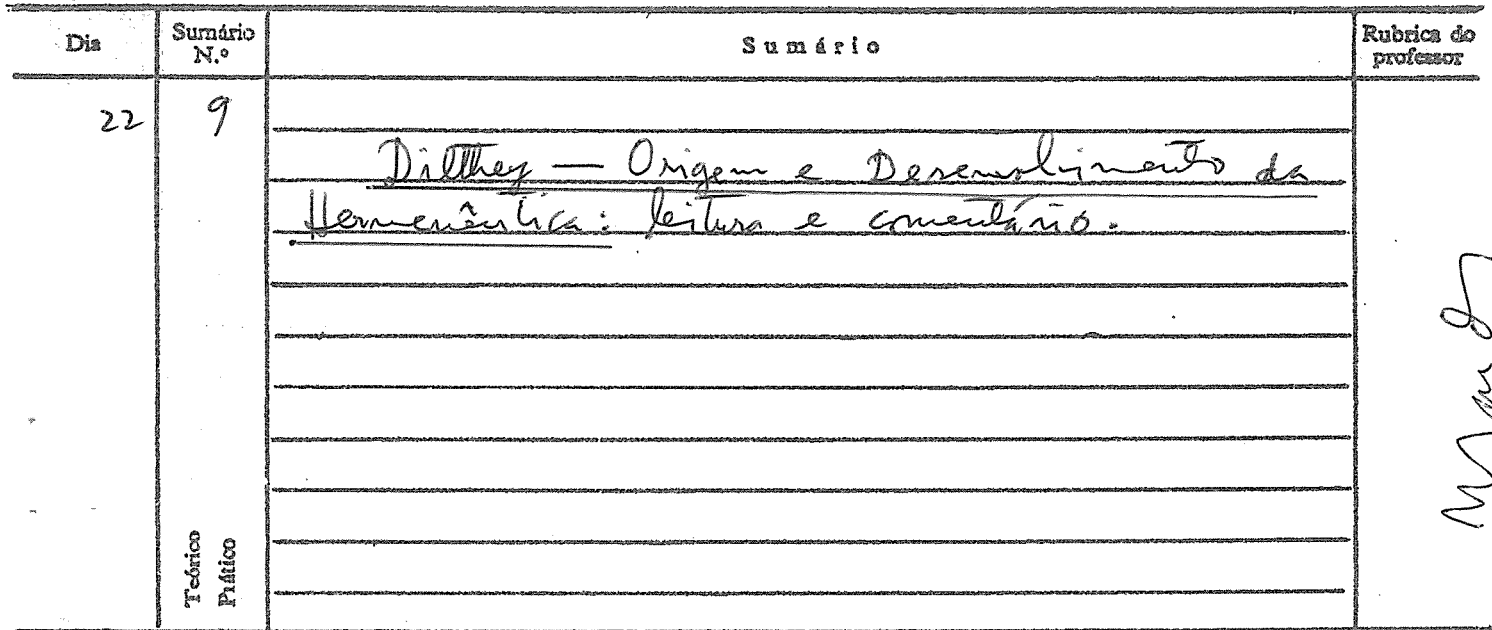 Dia
Sumário N.º
Sumário
Rubrica do professor
22
9
Dilthey — Origem e Desenvolvimento da
Hermenêutica: leitura e comentário.
Teórico
Prático